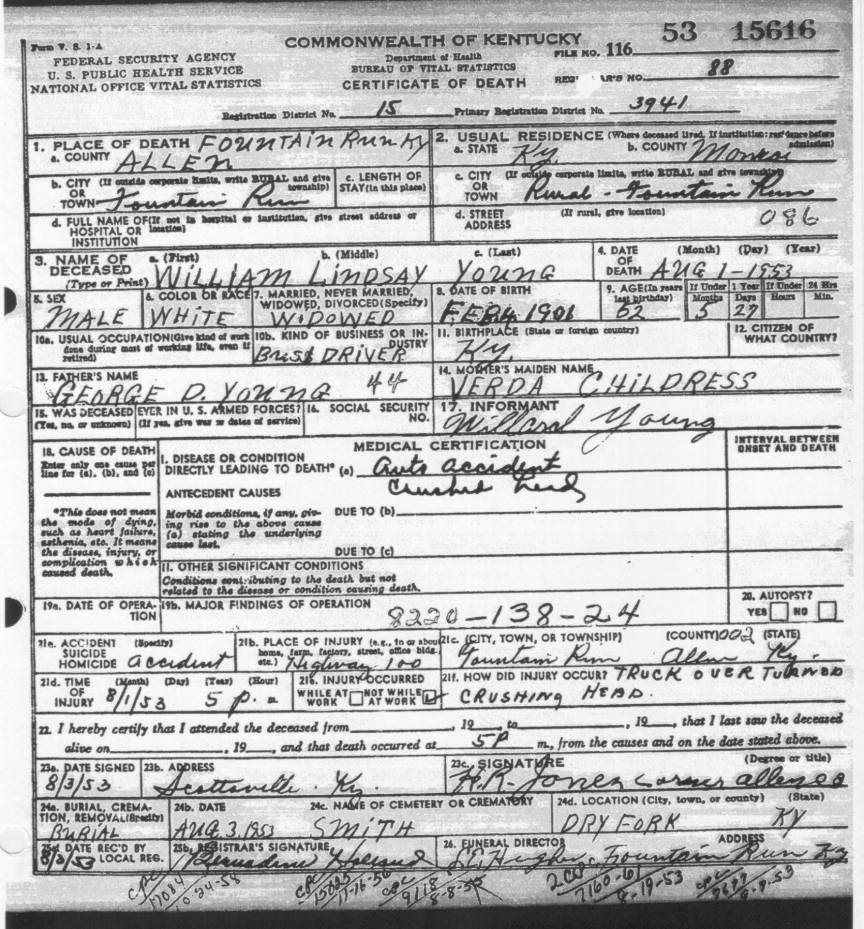 53 15616
Form V. S. 1-A
COMMONWEALTH OF KENTUCKY
FILE NO. 116
FEDERAL SECURITY AGENCY
Department of Health
U. S. PUBLIC HEALTH SERVICE
BUREAU OF VITAL STATISTICS
88
NATIONAL OFFICE VITAL STATISTICS
CERTIFICATE OF DEATH
Registration District No. 15
Primary Registration District No. 3941
1. PLACE OF DEATH FOUNTAIN RUN KY
a. COUNTY ALLEN
2. USUAL RESIDENCE (Where deceased lived. If institution: residence before admission)
a. STATE Ky. b. COUNTY Monroe
b. CITY (If outside corporate limits, write RURAL and give township)
OR
TOWN Fountain Run
c. LENGTH OF
STAY (in this place)
c. CITY (If outside corporate limits, write RURAL and give township)
OR
TOWN Rural - Fountain Run
d. FULL NAME OF (If not in hospital or institution, give street address or location)
HOSPITAL OR
INSTITUTION
d. STREET (If rural, give location)
ADDRESS
086
3. NAME OF DECEASED
(Type or Print)
a. (First) b. (Middle) c. (Last)
WILLIAM LINDSAY YOUNG
4. DATE OF DEATH (Month) (Day) (Year)
AUG 1-1953
5. SEX
MALE
6. COLOR OR RACE
WHITE
7. MARRIED, NEVER MARRIED, WIDOWED, DIVORCED (Specify)
WIDOWED
8. DATE OF BIRTH
FEB 4 1901
9. AGE (In years last birthday)
52
If Under 1 Year
Months 5 Days 27
If Under 24 Hrs
Hours Min.
10a. USUAL OCCUPATION (Give kind of work done during most of working life, even if retired)
10b. KIND OF BUSINESS OR INDUSTRY
DRIVER
11. BIRTHPLACE (State or foreign country)
KY.
12. CITIZEN OF WHAT COUNTRY?
13. FATHER'S NAME
GEORGE D. YOUNG 44
14. MOTHER'S MAIDEN NAME
VERDA CHILDRESS
15. WAS DECEASED EVER IN U. S. ARMED FORCES?
(Yes, no, or unknown) (If yes, give war or dates of service)
16. SOCIAL SECURITY NO.
17. INFORMANT
Willard Young
18. CAUSE OF DEATH
Enter only one cause per line for (a), (b), and (c)
MEDICAL CERTIFICATION
INTERVAL BETWEEN ONSET AND DEATH
I. DISEASE OR CONDITION
DIRECTLY LEADING TO DEATH* (a) Auto accident
Crushed head
ANTECEDENT CAUSES
*This does not mean the mode of dying, such as heart failure, asthenia, etc. It means the disease, injury, or complication which caused death.
Morbid conditions, if any, giving rise to the above cause (a) stating the underlying cause last.
DUE TO (b)
DUE TO (c)
II. OTHER SIGNIFICANT CONDITIONS
Conditions contributing to the death but not related to the disease or condition causing death.
19a. DATE OF OPERATION
19b. MAJOR FINDINGS OF OPERATION
8220-138-24
20. AUTOPSY?
YES NO
21a. ACCIDENT (Specify)
SUICIDE
HOMICIDE Accident
21b. PLACE OF INJURY (e.g., in or about home, farm, factory, street, office bldg. etc.)
Highway 100
21c. (CITY, TOWN, OR TOWNSHIP) (COUNTY) 002 (STATE)
Fountain Run Allen Ky.
21d. TIME OF INJURY (Month) (Day) (Year) (Hour)
8/1/53 5 p. m
21e. INJURY OCCURRED
WHILE AT WORK NOT WHILE AT WORK
21f. HOW DID INJURY OCCUR? TRUCK OVER TURNED
CRUSHING HEAD.
22. I hereby certify that I attended the deceased from , 19 , to , 19 , that I last saw the deceased
alive on , 19 , and that death occurred at 5P m., from the causes and on the date stated above.
23a. DATE SIGNED
8/3/53
23b. ADDRESS
Scottsville Ky.
23c. SIGNATURE (Degree or title)
H.R. Jones Corner Allen Co
24a. BURIAL, CREMATION, REMOVAL (Specify)
BURIAL
24b. DATE
AUG. 3, 1953
24c. NAME OF CEMETERY OR CREMATORY
SMITH
24d. LOCATION (City, town, or county) (State)
DRY FORK KY
25a. DATE REC'D BY LOCAL REG.
8/3/53
25b. REGISTRAR'S SIGNATURE
26. FUNERAL DIRECTOR ADDRESS
Fountain Run Ky
CPC 17084 10-24-58
CPC 15025 11-16-56
CPC 9118 8-8-55
8-19-53